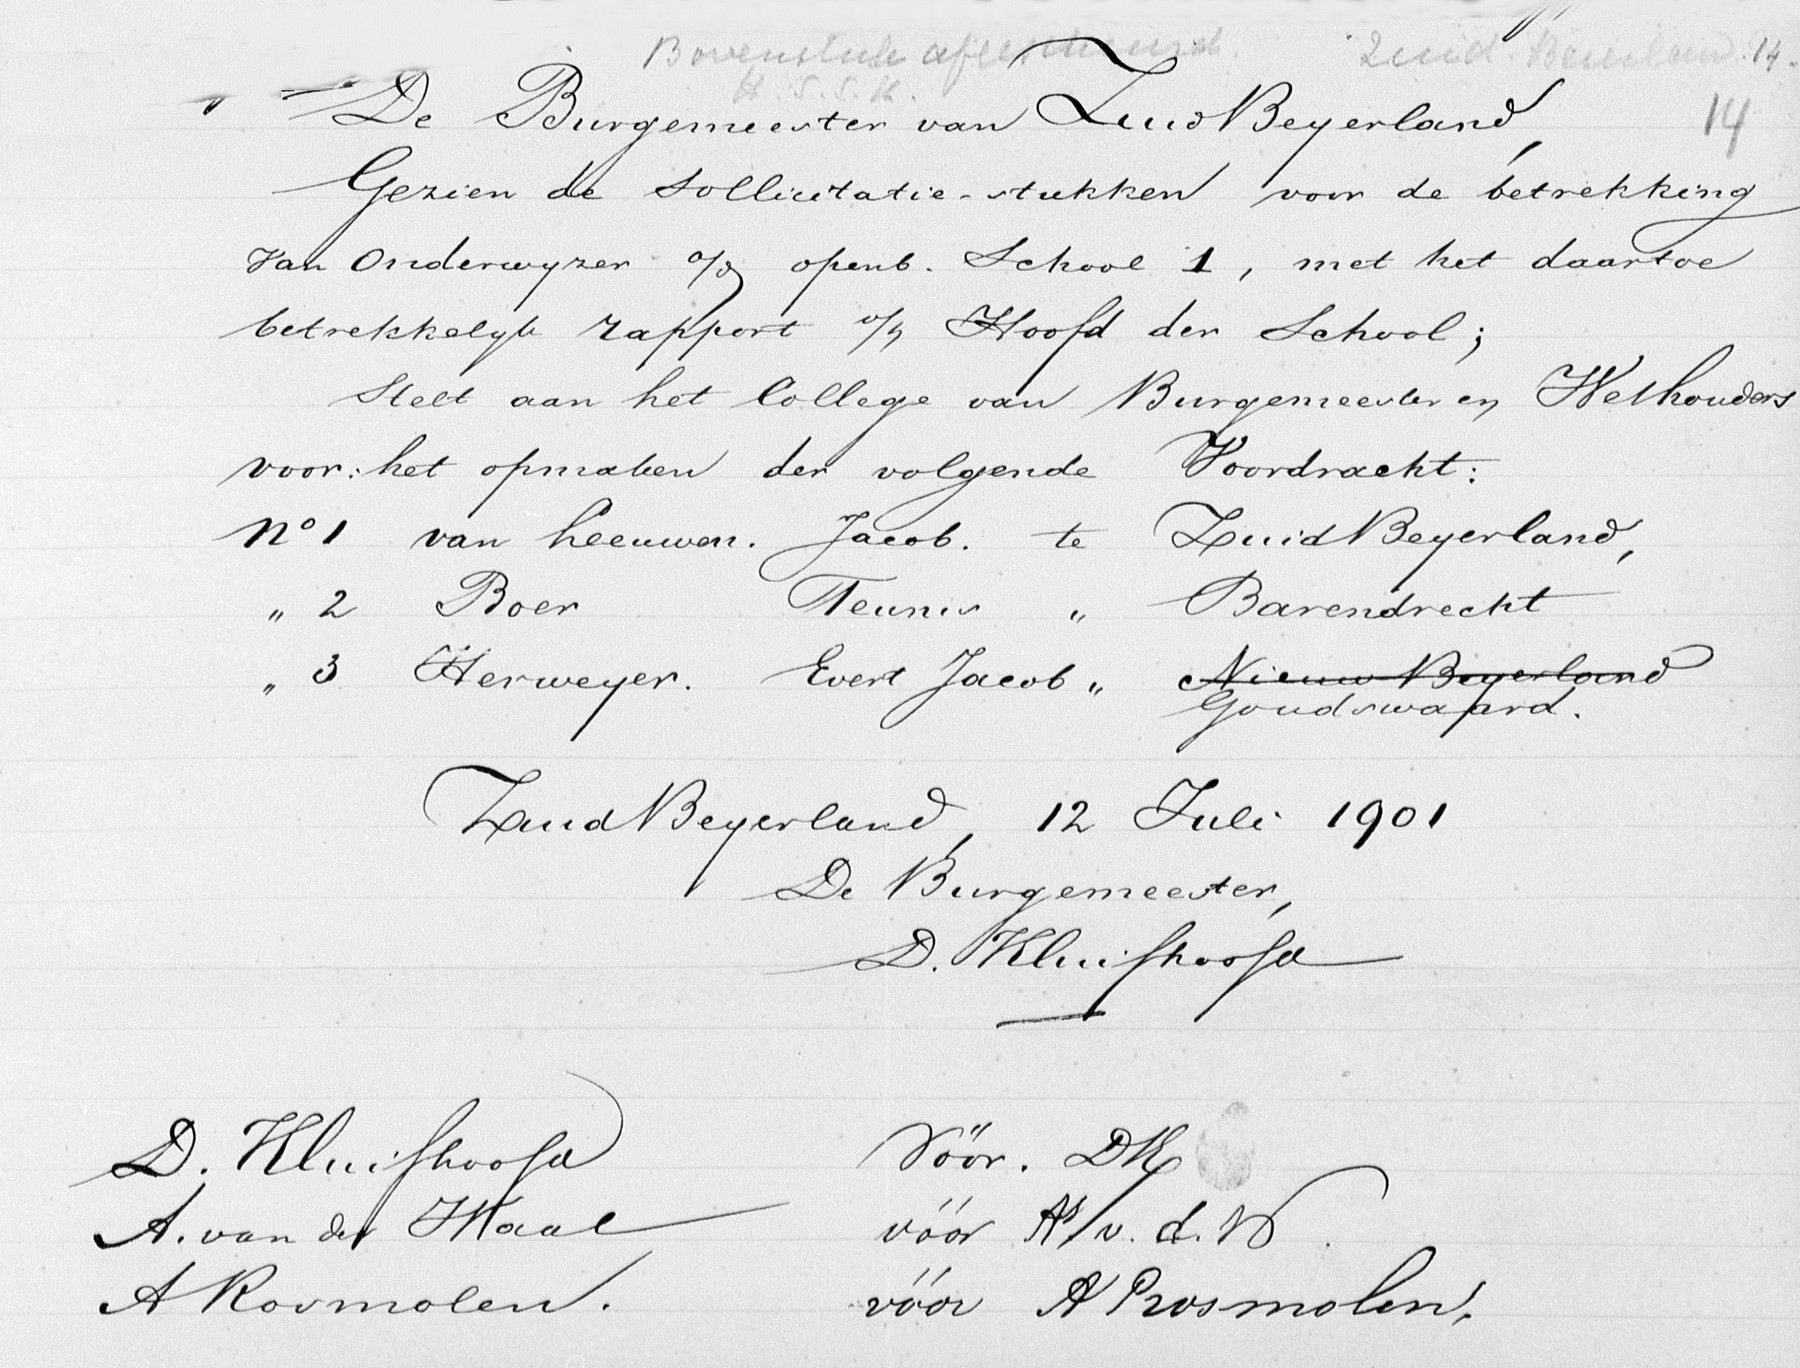 Zuid-Beierland. 14.
14
De Burgemeester van Zuid Beyerland,
Gezien de sollicitatie-stukken voor de betrekking
van Onderwyzer a/d openb. School 1, met het daartoe
betrekkelyk rapport v/h Hoofd der School;
Stelt aan het College van Burgemeester en Wethouders
voor: het opmaken der volgende Voordracht:
No 1 van Leeuwen. Jacob. te Zuid Beyerland,
„ 2 Boer Teunis „ Barendrecht
„ 3 Herweyer. Evert Jacob „ Nieuw Beyerland
Goudswaard.
Zuid Beyerland, 12 Juli 1901
De Burgemeester,
D. Kluifhoofd
D. Kluifhoofd Vóór. DK
A. van der Waal vóór A v. d. W.
A Rosmolen. vóór A Rosmolen.